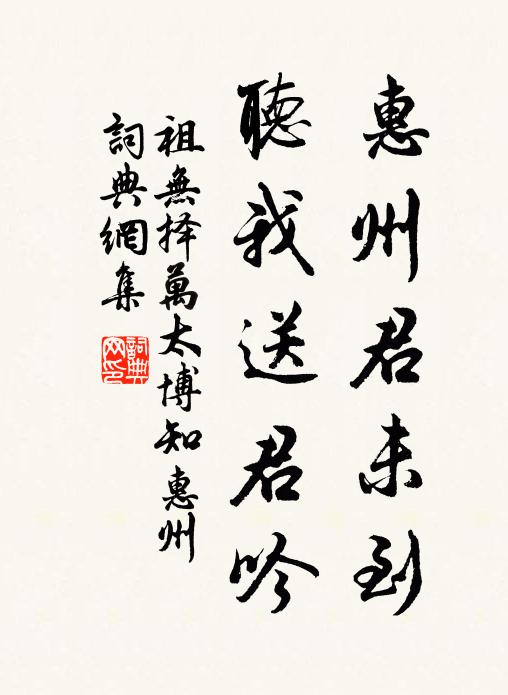 惠州君未到
聽我送君吟
祖無择萬太博知惠州
詞典網集
詞典網印